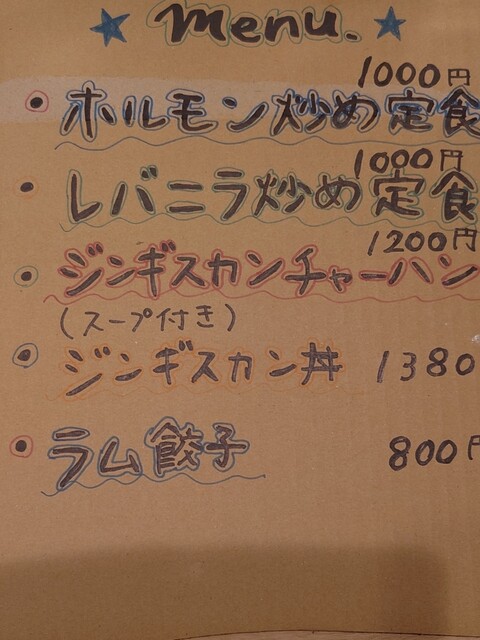 ★ menu. ★
1000円
・ホルモン炒め定食
1000円
・レバニラ炒め定食
1200円
・ジンギスカンチャーハン
(スープ付き)
・ジンギスカン丼 1380
・ラム餃子 800円